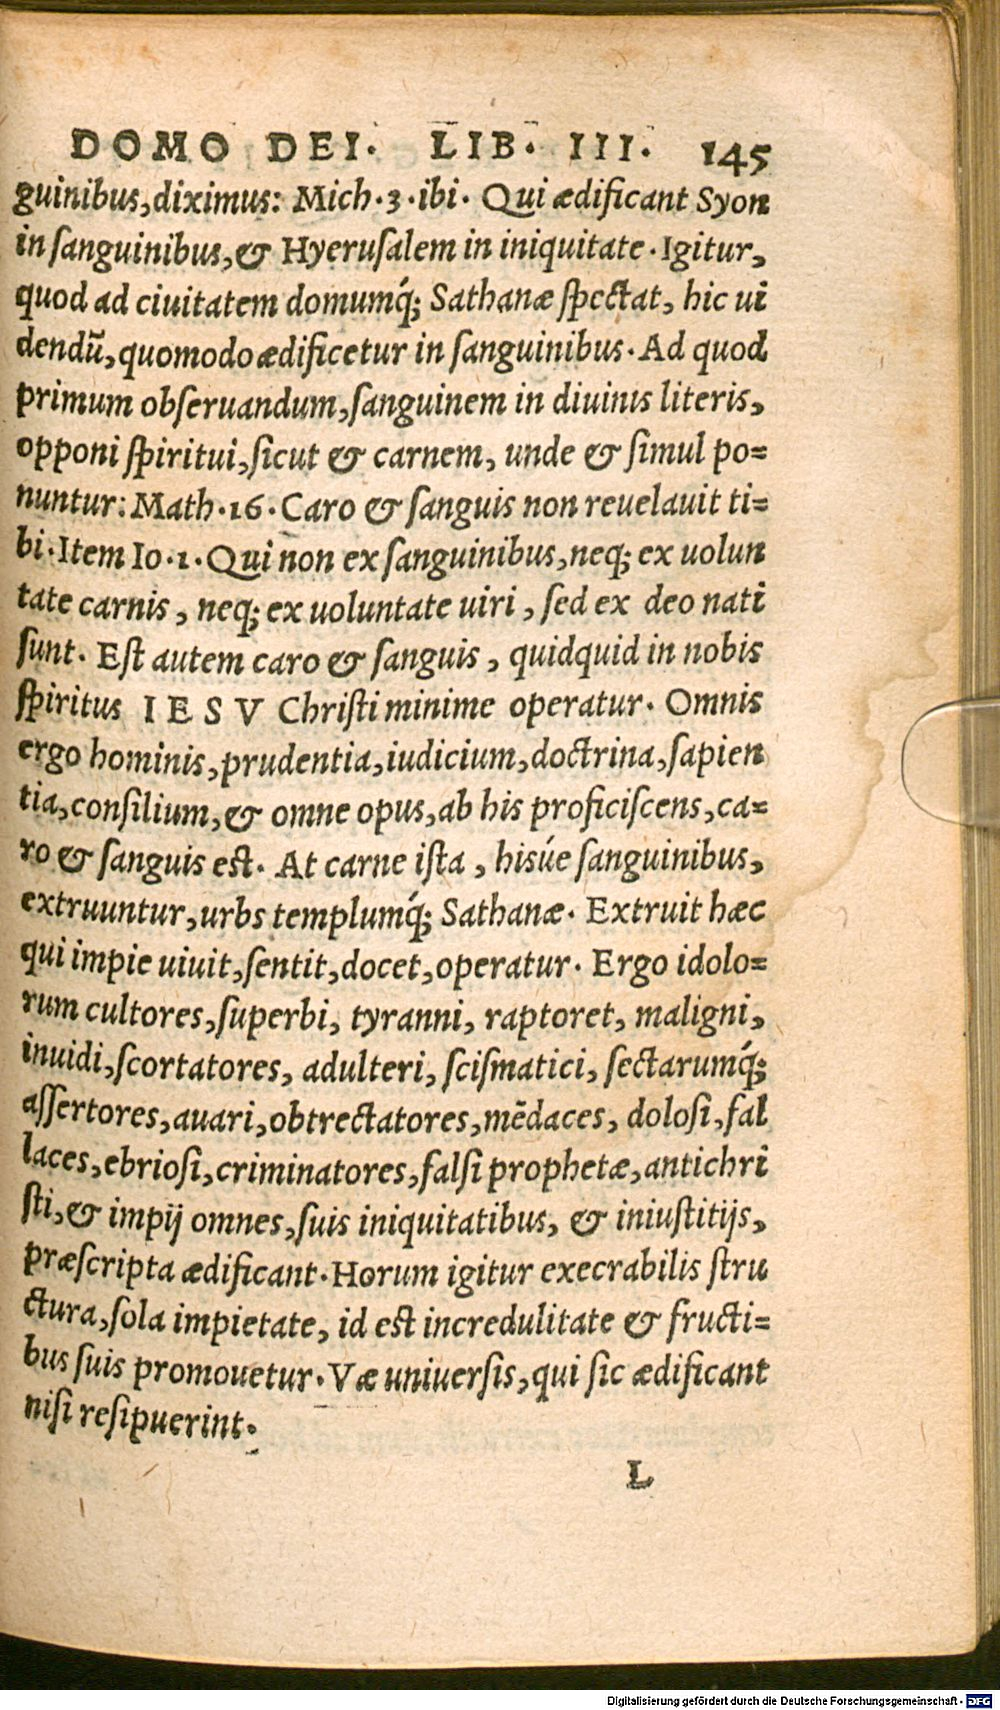 DOMO DEI. LIB. III. 145
guinibus, diximus: Mich. 3. ibi. Qui ædificant Syon
in sanguinibus, & Hyerusalem in iniquitate. Igitur,
quod ad ciuitatem domumq́; Sathanæ spectat, hic ui
dendũ, quomodo ædificetur in sanguinibus. Ad quod
primum obseruandum, sanguinem in diuinis literis,
opponi spiritui, sicut & carnem, unde & simul po=
nuntur: Math. 16. Caro & sanguis non reuelauit ti=
bi. Item Io. 1. Qui non ex sanguinibus, neq; ex uolun
tate carnis, neq; ex uoluntate uiri, sed ex deo nati
sunt. Est autem caro & sanguis, quidquid in nobis
spiritus IESV Christi minime operatur. Omnis
ergo hominis, prudentia, iudicium, doctrina, sapien
tia, consilium, & omne opus, ab his proficiscens, ca=
ro & sanguis est. At carne ista, hisúe sanguinibus,
extruuntur, urbs templumq́; Sathanæ. Extruit hæc
qui impie uiuit, sentit, docet, operatur. Ergo idolo=
rum cultores, superbi, tyranni, raptoret, maligni,
inuidi, scortatores, adulteri, scismatici, sectarumq́;
assertores, auari, obtrectatores, mẽdaces, dolosi, fal
laces, ebriosi, criminatores, falsi prophetæ, antichri
sti, & impij omnes, suis iniquitatibus, & iniustitijs,
præscripta ædificant. Horum igitur execrabilis stru
ctura, sola impietate, id est incredulitate & fructi=
bus suis promouetur. Væ uniuersis, qui sic ædificant
nisi resipuerint.
L
Digitalisierung gefördert durch die Deutsche Forschungsgemeinschaft - DFG